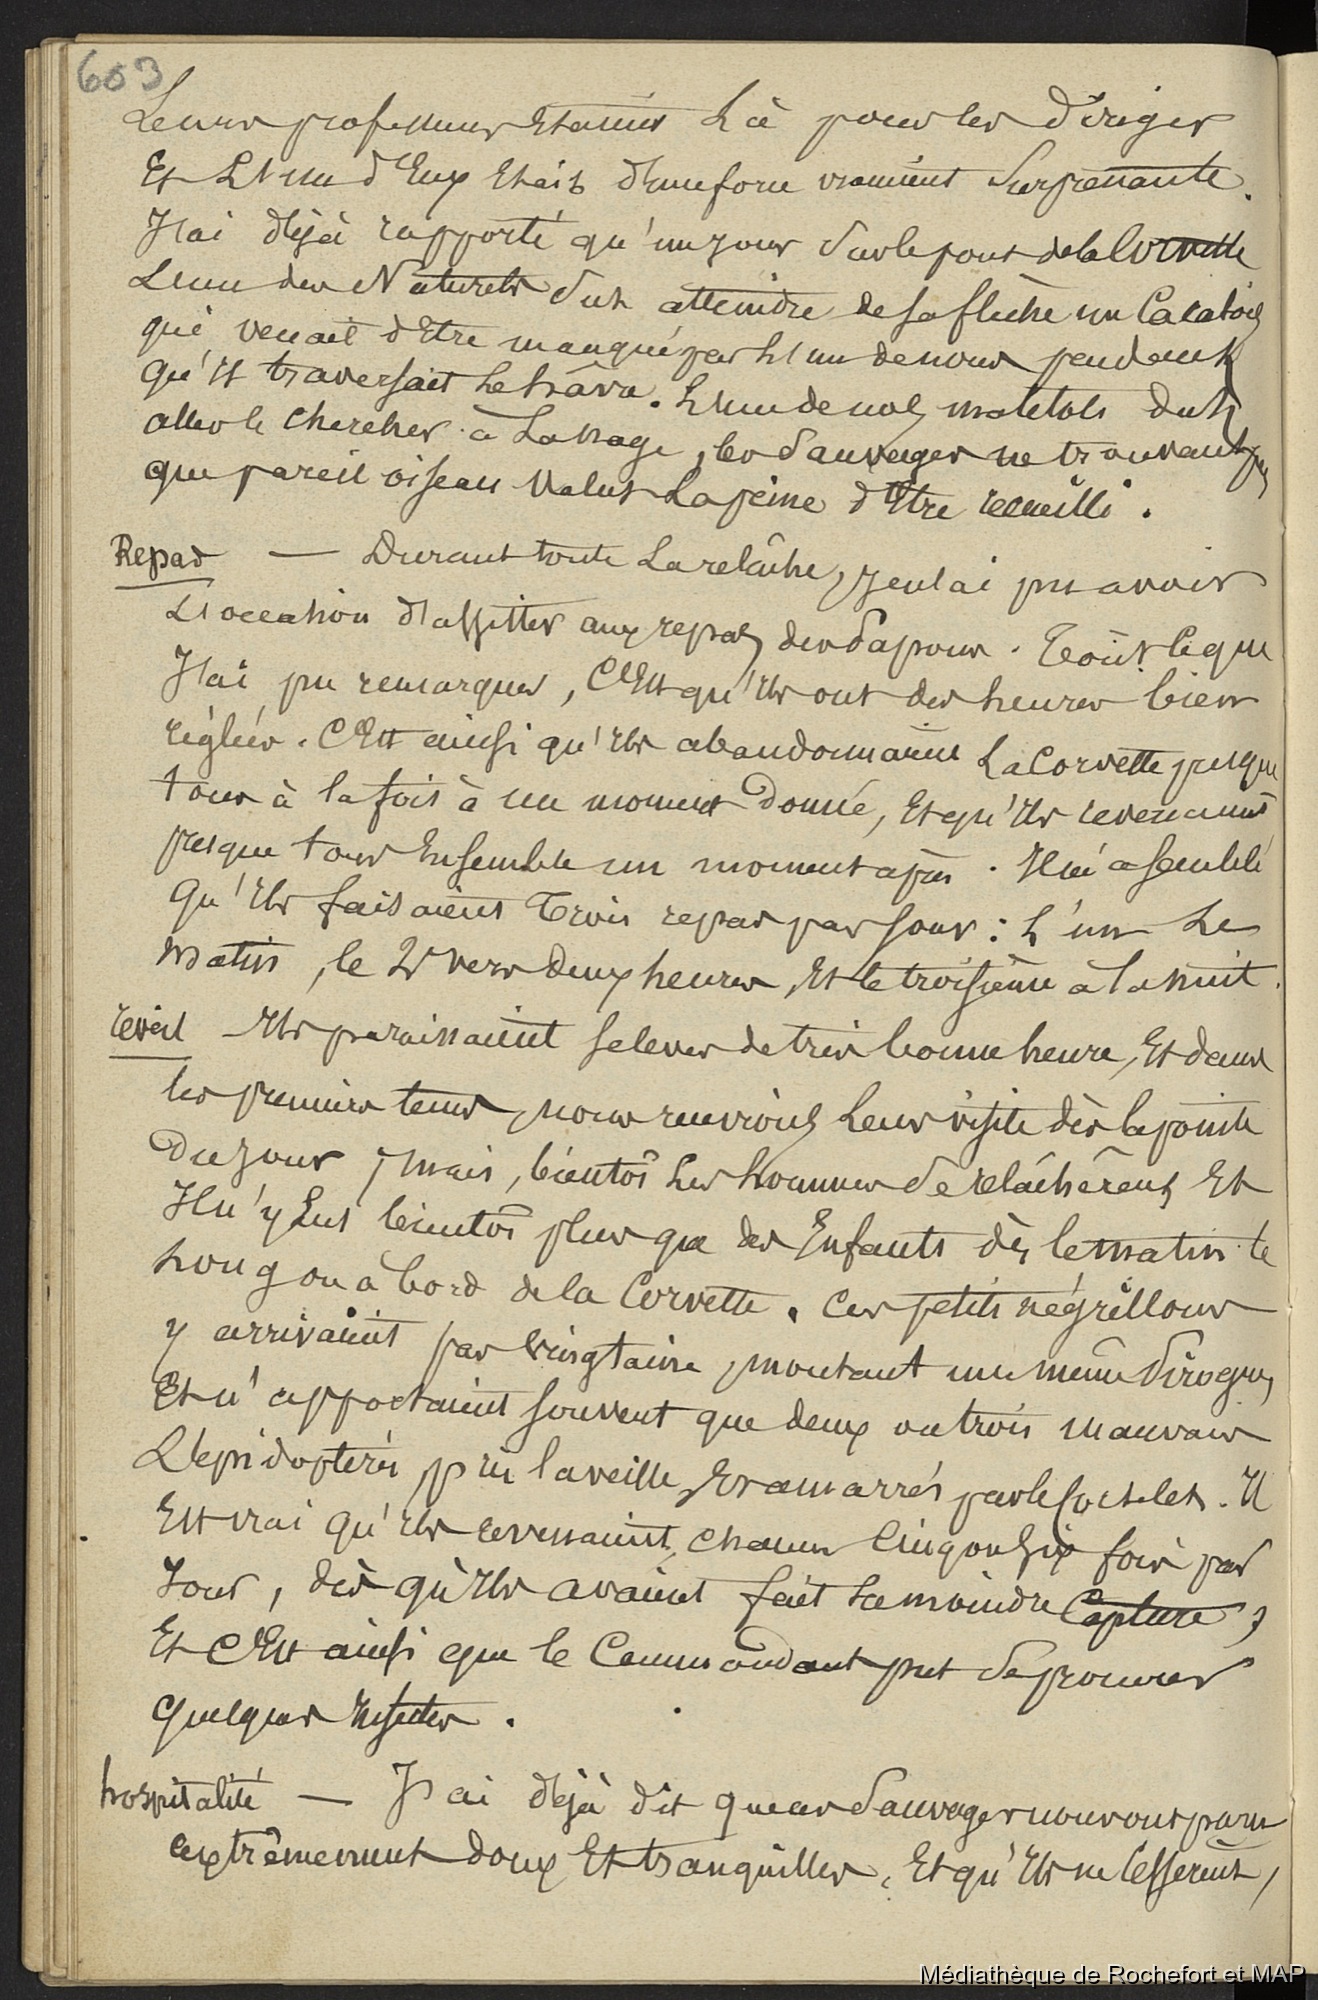 603
Leurs professeurs Etaient Là pour les Diriger
Et L'un d'Eux Etait d'une force vraiment Surprenante.
J'ai déjà rapporté qu'un jour Sur le pont de la Corvette
L'un des Naturels Sut atteindre de sa flèche un Cacatois
qui venait d'Etre manqué par L'un de nous pendant
qu'il traversait Le hâvre. L'un de nos matelots dut
aller le chercher à La nage, les Sauvages ne trouvant pas
que pareil oiseau Valut La peine d'Etre recueilli.
Repas — Durant toute La relâche, je n'ai pu avoir
L'occasion d'assister aux repas des Papous. Tout Ce que
J'ai pu remarquer, C'Est qu'Ils ont des heures bien
réglées. C'Est ainsi qu'Ils abandonnaient La Corvette presque
tous à la fois à un moment Donné, Et qu'Ils revenaient
presque tous Ensemble un moment après. Il m'a semblé
Qu'Ils faisaient Trois repas par Jour : L'un Le
matin, le 2e vers deux heures, Et le troisième à la nuit.
reveil — Ils paraissaient se lever de très bonne heure, Et dans
les premiers tems, nous recevions Leur visite dès la pointe
Du jour ; mais, bientôt Les hommes Se relâchèrent, Et
Il n'y Eut bientôt plus que des Enfants dès le matin le
long ou à bord de la Corvette. Ces petits négrillons
y arrivaient par Vingtaine, montant une même Pirogue,
Et n'apportaient souvent que deux ou trois mauvais
Lépidoptères, pris la veille, Et amarrés par le Corselet. Il
Est vrai qu'Ils revenaient, chacun Cinq ou Six fois par
Jour, dès qu'Ils avaient fait La moindre Capture,
Et C'Est ainsi que le Commandant put Se procurer
Quelques Insectes.
hospitalité — J'ai déjà dit que ces Sauvages nous ont paru
extrêmement doux Et tranquilles, Et qu'Ils ne Cessèrent,
Médiathèque de Rochefort et MAP